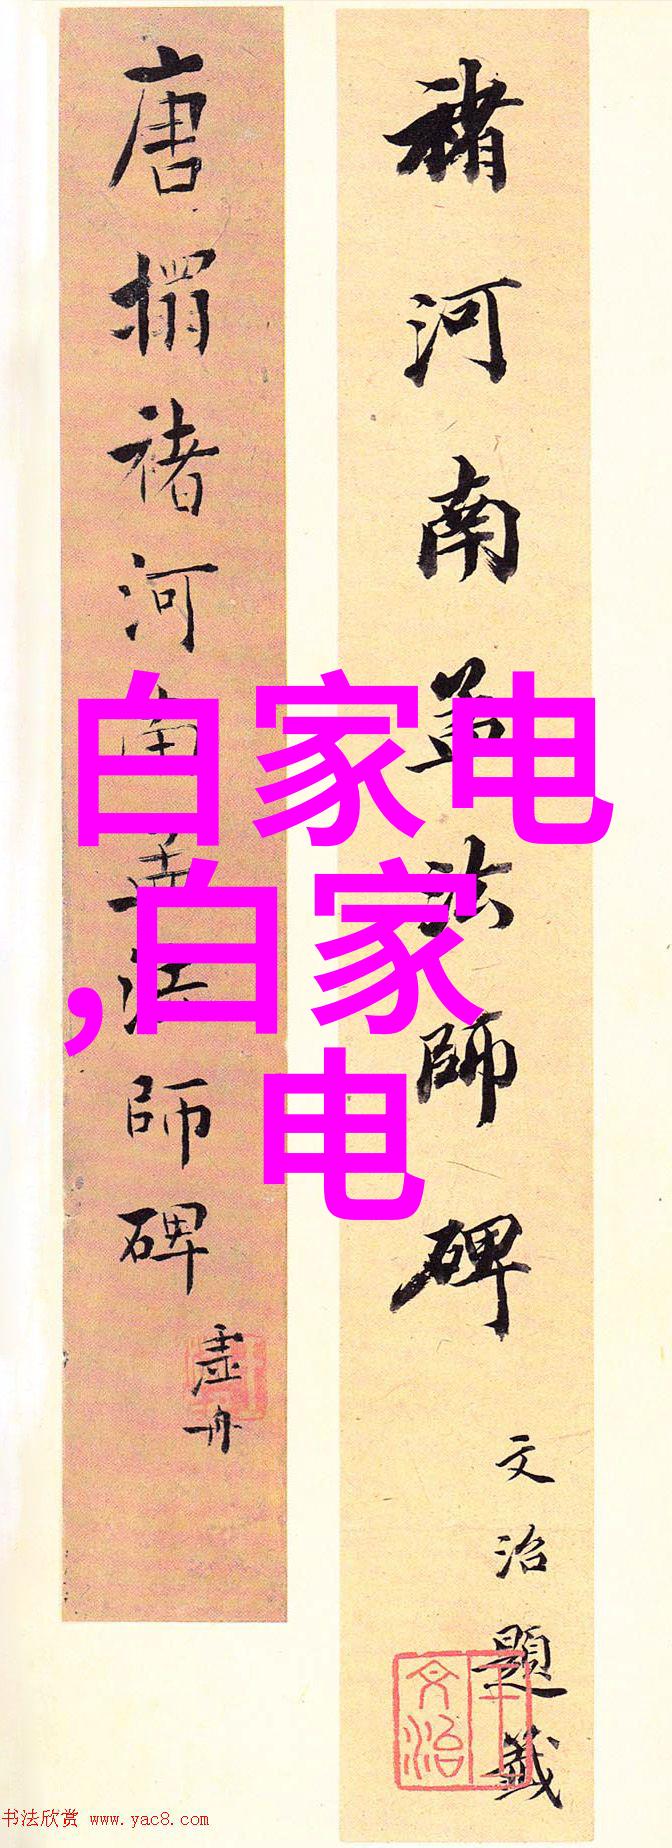 褚河南孟法師碑
文治題籤
王文治
唐搨褚河南孟法師碑
虛舟
白家电
,白家
电
书法欣赏 www.yac8.com